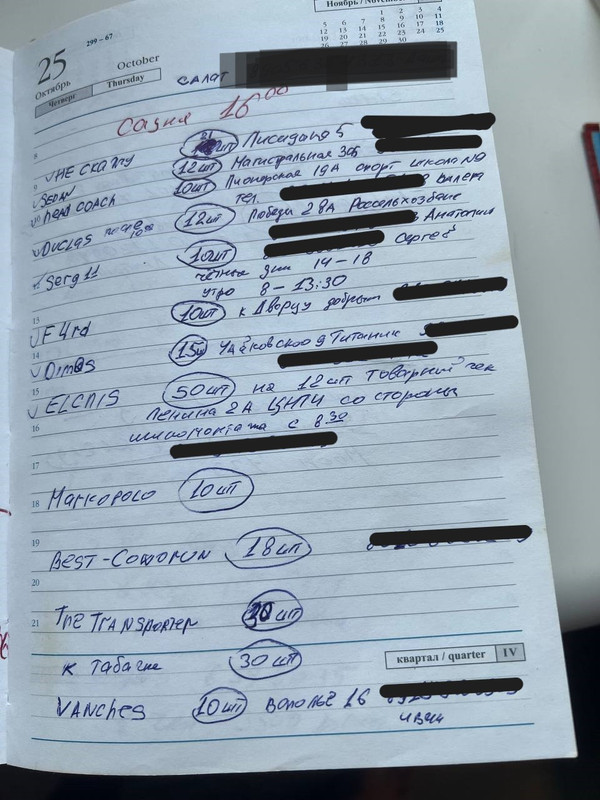 Ноябрь / November
1 2 3 4
5 6 7 8 9 10 11
12 13 14 15 16 17 18
19 20 21 22 23 24 25
26 29 30
25
299 – 67
October
Октябрь
Четверг Thursday
салат
16 00
8
НЕ СКАЖУ 21 шт Лисицына 5
9 SEDAN 12шт Магистральная
10 HEAD COACH 10шт Пионерская 19А спорт школа №
тел. Валера
DUCLAS после 10 00 12шт Победы 28А Россельхозбанк
Анатолий
Serg 11 10шт Сергей
чётные дни 14-18
утро 8-13:30
13
F4rd 10шт к Дворцу добрый
14
Dimas 15ш Чайковского 9 Титаник
15
ELCHIS 50шт на 12шт товарный чек
Ленина 2А ЦНТИ со стороны
16
шиномонтажа с 8 30
17
18 Маркополо 10шт
19
BEST- 18шт
20
21 THE TRANSPORTER 30шт
к табачке 30шт
квартал / quarter IV
VANches 10шт 16